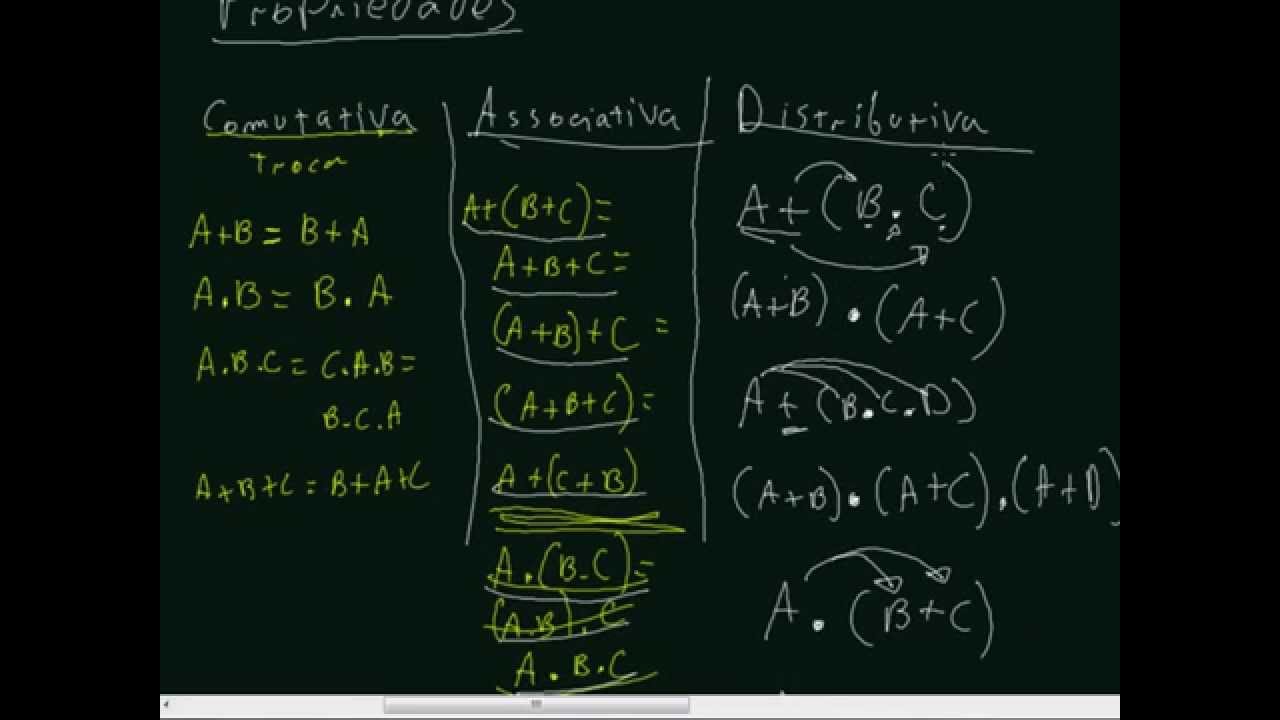 Propriedades
Comutativa
Troca
A+B = B+A
A.B = B.A
A.B.C = C.A.B =
B.C.A
A+B+C = B+A+C
Associativa
A+(B+C)=
A+B+C=
(A+B)+C =
(A+B+C)=
A+(C+B)
A.(B.C)=
(A.B).C
A.B.C
Distributiva
A+(B.C)
(A+B).(A+C)
A+(B.C.D)
(A+B).(A+C).(A+D)
A.(B+C)